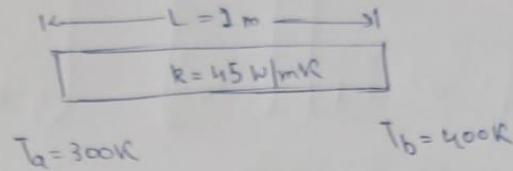 L = 1 m
k = 45 W/mK
Ta = 300K
Tb = 400K